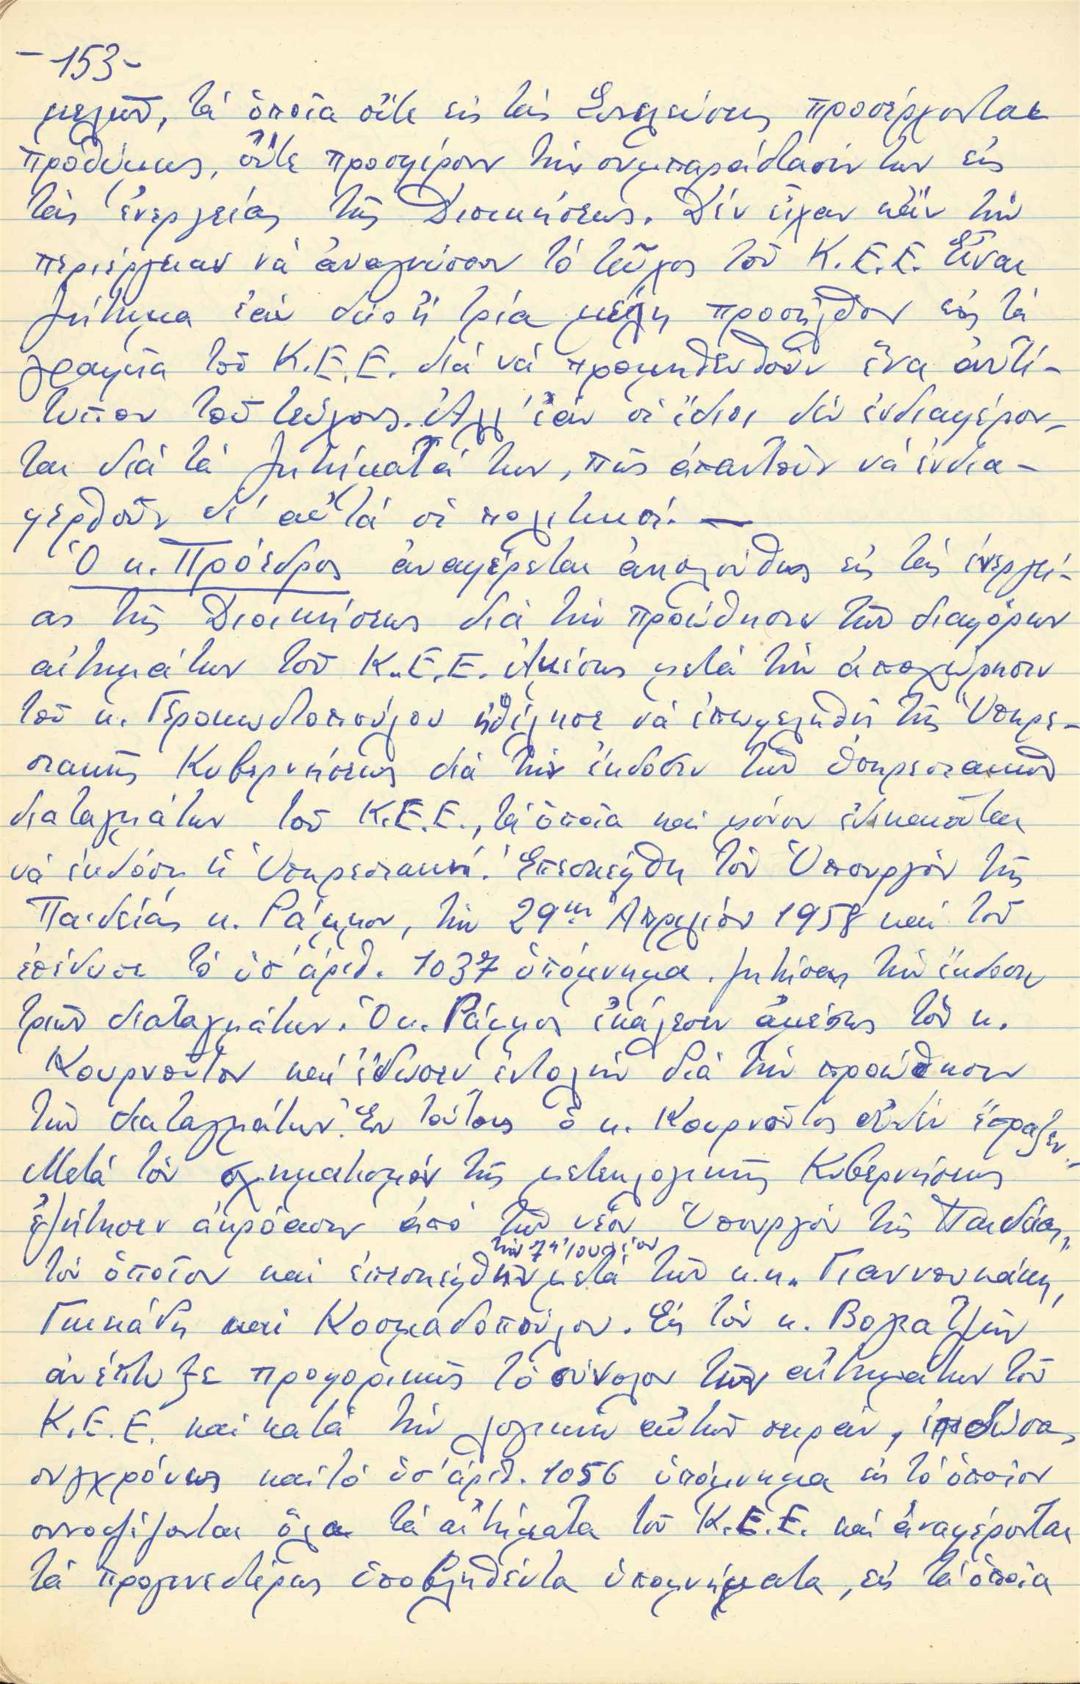 -153-
μελῶν, τὰ ὁποῖα οὔτε εἰς τὰς Συνελεύσεις προσέρχονται
προθύμως, οὔτε προσφέρουν τὴν συμπαράστασίν των εἰς
τὰς ἐνεργείας τῆς Διοικήσεως. Δὲν εἶχαν κἂν τὴν
περιέργειαν νὰ ἀναγνώσουν τὸ τεῦχος τοῦ Κ.Ε.Ε. Εἶναι
ζήτημα ἐὰν δύο ἢ τρία μέλη προσῆλθον εἰς τὰ
γραφεῖα τοῦ Κ.Ε.Ε. διὰ νὰ προμηθευθοῦν ἕνα ἀντί-
τυπον τοῦ τεύχους. Ἀλλ' ἐὰν οἱ ἴδιοι δὲν ἐνδιαφέρον-
ται διὰ τὰ ζητήματά των, πῶς ἀπαιτοῦν νὰ ἐνδια-
φερθοῦν δι' αὐτὰ οἱ πολιτικοί. —
Ὁ κ. Πρόεδρος ἀναφέρεται ἀκολούθως εἰς τὰς ἐνεργεί-
ας τῆς Διοικήσεως διὰ τὴν προώθησιν τῶν διαφόρων
αἰτημάτων τοῦ Κ.Ε.Ε. Ἀμέσως μετὰ τὴν ἀποχώρησιν
τοῦ κ. Γεροκωστοπούλου ἠθέλησε νὰ ἐπωφεληθῇ τῆς Ὑπηρε-
σιακῆς Κυβερνήσεως διὰ τὴν ἔκδοσιν τῶν ὑπηρεσιακῶν
διαταγμάτων τοῦ Κ.Ε.Ε., τὰ ὁποῖα καὶ μόνον ἐδικαιοῦται
νὰ ἐκδώσῃ ἡ Ὑπηρεσιακή. Ἐπεσκέφθη τὸν Ὑπουργὸν τῆς
Παιδείας κ. Ράμμον, τὴν 29ην Ἀπριλίου 1958 καὶ τοῦ
ἐπέδωσε τὸ ὑπ' ἀριθ. 1037 ὑπόμνημα, ζητήσας τὴν ἔκδοσιν
τριῶν διαταγμάτων. Ὁ κ. Ράμμος ἐκάλεσεν ἀμέσως τὸν κ.
Κουρνοῦτον καὶ ἔδωσεν ἐντολὴν διὰ τὴν προώθησιν
τῶν διαταγμάτων. Ἐν τούτοις ὁ κ. Κουρνοῦτος οὐδὲν ἔπραξεν.-
Μετὰ τὸν σχηματισμὸν τῆς μετεκλογικῆς Κυβερνήσεως
ἐζήτησεν ἀκρόασιν ἀπὸ τὸν νέον Ὑπουργὸν τῆς Παιδείας,
τὴν 7ην Ἰουλίου
τὸν ὁποῖον καὶ ἐπεσκέφθη μετὰ τῶν κ.κ. Γιαννουκάκη,
Γκικάδη καὶ Κοσμαδοπούλου. Εἰς τὸν κ. Βογιατζῆν
ἀνέπτυξε προφορικῶς τὸ σύνολον τῶν αἰτημάτων τοῦ
Κ.Ε.Ε. καὶ κατὰ τὴν λογικὴν αὐτῶν σειράν, ἐπιδώσας
συγχρόνως καὶ τὸ ὑπ' ἀριθ. 1056 ὑπόμνημα εἰς τὸ ὁποῖον
συνοψίζονται ὅλα τὰ αἰτήματα τοῦ Κ.Ε.Ε. καὶ ἀναφέρονται
τὰ προγενεστέρως ὑποβληθέντα ὑπομνήματα, εἰς τὰ ὁποῖα